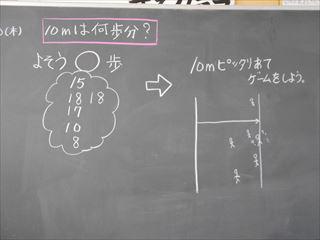 (木)
10mは何歩分?
よそう 歩
15
18 18
17
10
8
10mピッタリあて
ゲームをしよう。